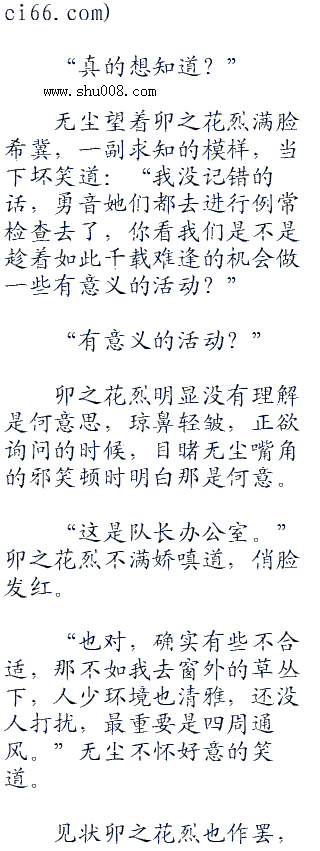 ci66.com)
“真的想知道？”
www.shu008.com
无尘望着卯之花烈满脸
希冀，一副求知的模样，当
下坏笑道：“我没记错的
话，勇音她们都去进行例常
检查去了，你看我们是不是
趁着如此千载难逢的机会做
一些有意义的活动？”
“有意义的活动？”
卯之花烈明显没有理解
是何意思，琼鼻轻皱，正欲
询问的时候，目睹无尘嘴角
的邪笑顿时明白那是何意。
“这是队长办公室。”
卯之花烈不满娇嗔道，俏脸
发红。
“也对，确实有些不合
适，那不如我去窗外的草丛
下，人少环境也清雅，还没
人打扰，最重要是四周通
风。”无尘不怀好意的笑
道。
见状卯之花烈也作罢，